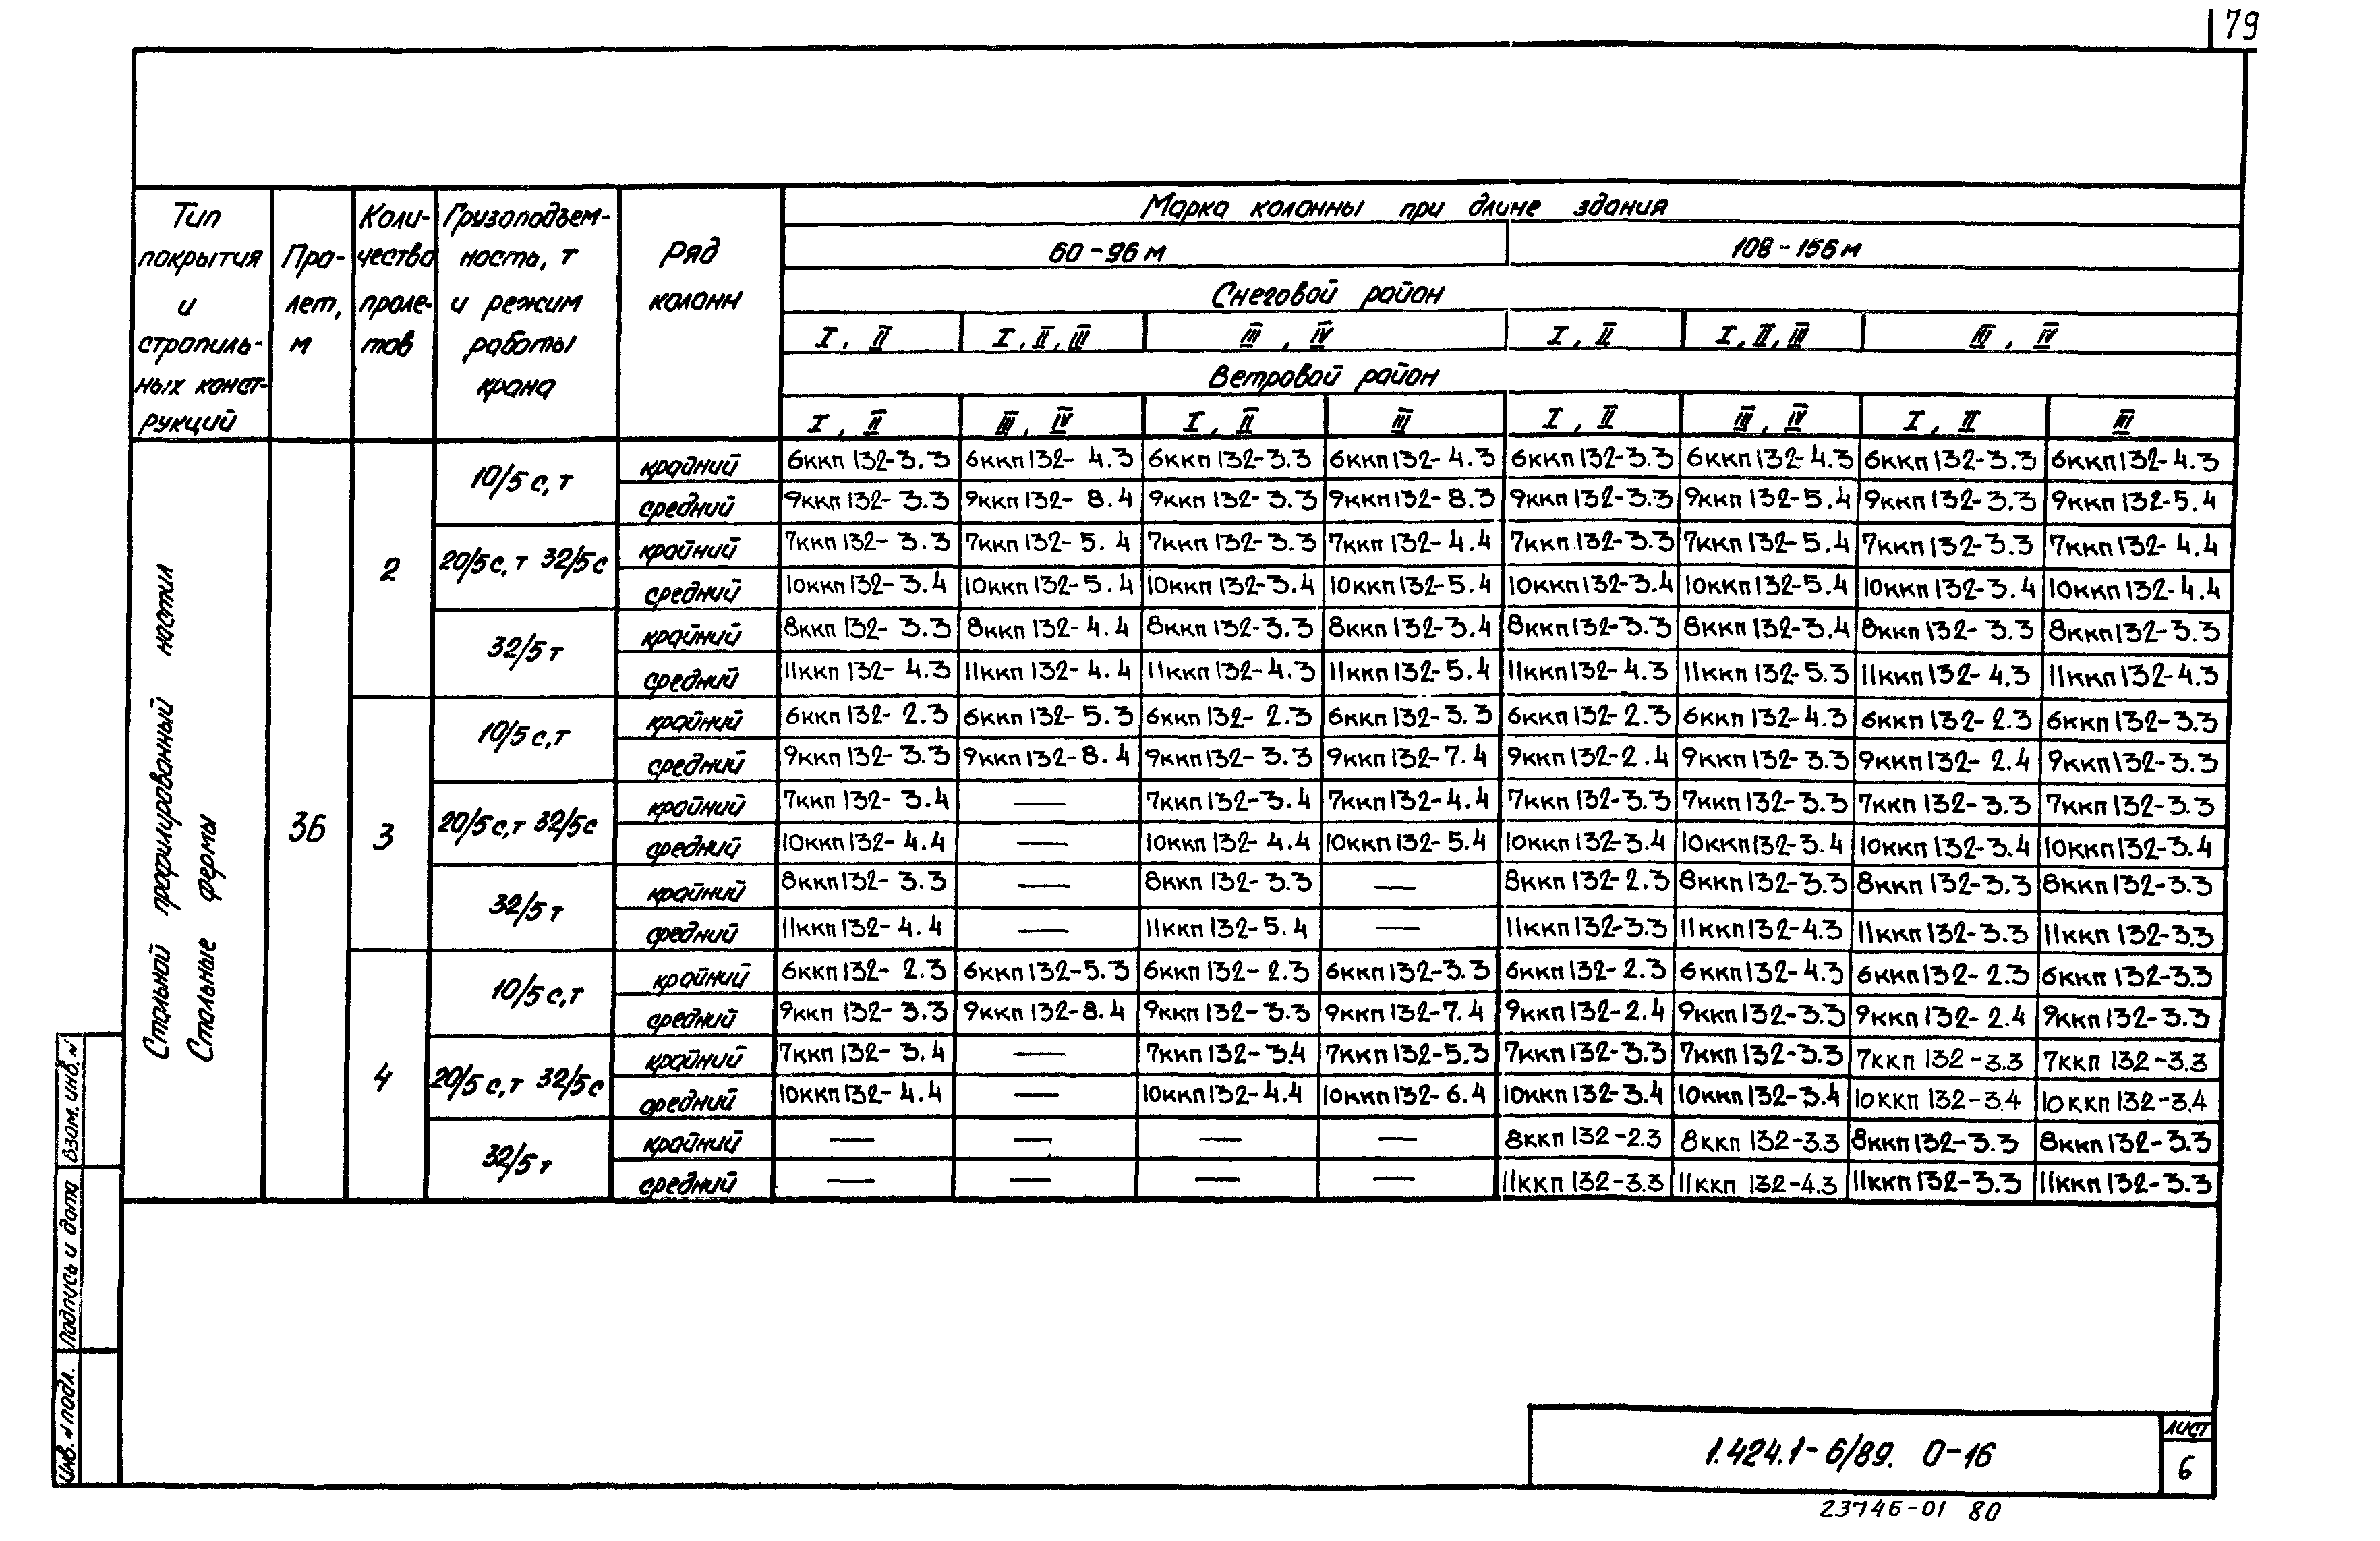 79
Тип покрытия и стропиль-ных конст-рукций
Про-лет, м
Коли-чество проле-тов
Грузоподъем-ность, т и режим работы крана
Ряд колонн
Марка колонны при длине здания
60-96 м 108-156 м
Снеговой район
I, II I, II, III III, IV I, II I, II, III III, IV
Ветровой район
I, II III, IV I, II III I, II III, IV I, II III
Стальной профилированный настил
Стальные фермы
36
2
10/5 с, т
крайний 6ккп 132-3.3 6ккп 132-4.3 6ккп 132-3.3 6ккп 132-4.3 6ккп 132-3.3 6ккп 132-4.3 6ккп 132-3.3 6ккп 132-4.3
средний 9ккп 132-3.3 9ккп 132-8.4 9ккп 132-3.3 9ккп 132-8.3 9ккп 132-3.3 9ккп 132-5.4 9ккп 132-3.3 9ккп 132-5.4
20/5 с, т 32/5 с
крайний 7ккп 132-3.3 7ккп 132-5.4 7ккп 132-3.3 7ккп 132-4.4 7ккп 132-3.3 7ккп 132-5.4 7ккп 132-3.3 7ккп 132-4.4
средний 10ккп 132-3.4 10ккп 132-5.4 10ккп 132-3.4 10ккп 132-5.4 10ккп 132-3.4 10ккп 132-5.4 10ккп 132-3.4 10ккп 132-4.4
32/5 т
крайний 8ккп 132-3.3 8ккп 132-4.4 8ккп 132-3.3 8ккп 132-3.4 8ккп 132-3.3 8ккп 132-3.4 8ккп 132-3.3 8ккп 132-3.3
средний 11ккп 132-4.3 11ккп 132-4.4 11ккп 132-4.3 11ккп 132-5.4 11ккп 132-4.3 11ккп 132-5.3 11ккп 132-4.3 11ккп 132-4.3
3
10/5 с, т
крайний 6ккп 132-2.3 6ккп 132-5.3 6ккп 132-2.3 6ккп 132-3.3 6ккп 132-2.3 6ккп 132-4.3 6ккп 132-2.3 6ккп 132-3.3
средний 9ккп 132-3.3 9ккп 132-8.4 9ккп 132-3.3 9ккп 132-7.4 9ккп 132-2.4 9ккп 132-3.3 9ккп 132-2.4 9ккп 132-3.3
20/5 с, т 32/5 с
крайний 7ккп 132-3.4 — 7ккп 132-3.4 7ккп 132-4.4 7ккп 132-3.3 7ккп 132-3.3 7ккп 132-3.3 7ккп 132-3.3
средний 10ккп 132-4.4 — 10ккп 132-4.4 10ккп 132-5.4 10ккп 132-3.4 10ккп 132-3.4 10ккп 132-3.4 10ккп 132-3.4
32/5 т
крайний 8ккп 132-3.3 — 8ккп 132-3.3 — 8ккп 132-2.3 8ккп 132-3.3 8ккп 132-3.3 8ккп 132-3.3
средний 11ккп 132-4.4 — 11ккп 132-5.4 — 11ккп 132-3.3 11ккп 132-4.3 11ккп 132-3.3 11ккп 132-3.3
4
10/5 с, т
крайний 6ккп 132-2.3 6ккп 132-5.3 6ккп 132-2.3 6ккп 132-3.3 6ккп 132-2.3 6ккп 132-4.3 6ккп 132-2.3 6ккп 132-3.3
средний 9ккп 132-3.3 9ккп 132-8.4 9ккп 132-3.3 9ккп 132-7.4 9ккп 132-2.4 9ккп 132-3.3 9ккп 132-2.4 9ккп 132-3.3
20/5 с, т 32/5 с
крайний 7ккп 132-3.4 — 7ккп 132-3.4 7ккп 132-5.3 7ккп 132-3.3 7ккп 132-3.3 7ккп 132-3.3 7ккп 132-3.3
средний 10ккп 132-4.4 — 10ккп 132-4.4 10ккп 132-6.4 10ккп 132-3.4 10ккп 132-3.4 10ккп 132-3.4 10ккп 132-3.4
32/5 т
крайний — — — — 8ккп 132-2.3 8ккп 132-3.3 8ккп 132-3.3 8ккп 132-3.3
средний — — — — 11ккп 132-3.3 11ккп 132-4.3 11ккп 132-3.3 11ккп 132-3.3
Взам. инв. №
Подпись и дата
Инв. № подл.
1.424.1-6/89. 0-16
Лист
6
23746-01 80